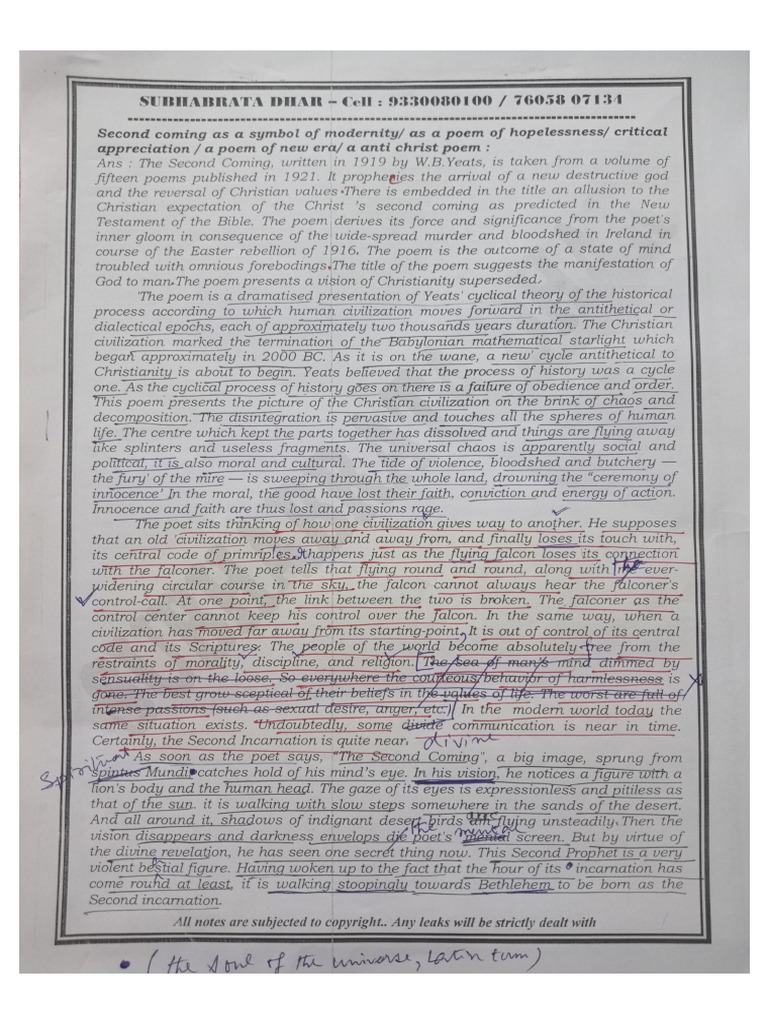 SUBHABRATA DHAR – Cell : 9330080100 / 76058 07134
Second coming as a symbol of modernity/ as a poem of hopelessness/ critical
appreciation / a poem of new era/ a anti christ poem :
Ans : The Second Coming, written in 1919 by W.B.Yeats, is taken from a volume of
fifteen poems published in 1921. It prophecies the arrival of a new destructive god
and the reversal of Christian values.There is embedded in the title an allusion to the
Christian expectation of the Christ 's second coming as predicted in the New
Testament of the Bible. The poem derives its force and significance from the poet's
inner gloom in consequence of the wide-spread murder and bloodshed in Ireland in
course of the Easter rebellion of 1916. The poem is the outcome of a state of mind
troubled with omnious forebodings.The title of the poem suggests the manifestation of
God to man.The poem presents a vision of Christianity superseded.
'The poem is a dramatised presentation of Yeats' cyclical theory of the historical
process according to which human civilization moves forward in the antithetical or
dialectical epochs, each of approximately two thousands years duration. The Christian
civilization marked the termination of the Babylonian mathematical starlight which
began approximately in 2000 BC. As it is on the wane, a new' cycle antithetical to
Christianity is about to begin. Yeats believed that the process of history was a cycle
one. As the cyclical process of history goes on there is a failure of obedience and order.
This poem presents the picture of the Christian civilization on the brink of chaos and
decomposition. The disintegration is pervasive and touches all the spheres of human
life. The centre which kept the parts together has dissolved and things are flying away
like splinters and useless fragments. The universal chaos is apparently social and
political, it is also moral and cultural. The tide of violence, bloodshed and butchery —
the fury' of the mire — is sweeping through the whole land, drowning the "ceremony of
innocence' In the moral, the good have lost their faith, conviction and energy of action.
Innocence and faith are thus lost and passions rage.
The poet sits thinking of how one civilization gives way to another. He supposes
that an old 'civilization moves away and away from, and finally loses its touch with,
its central code of primriples. It happens just as the flying falcon loses its connection
with the falconer. The poet tells that flying round and round, along with the ever-
widening circular course in the sky, the falcon cannot always hear the falconer's
control-call. At one point, the link between the two is broken. The falconer as the
control center cannot keep his control over the falcon. In the same way, when a
civilization has moved far away from its starting-point, It is out of control of its central
code and its Scriptures. The people of the world become absolutely free from the
restraints of morality, discipline, and religion. The sea of man's mind dimmed by
sensuality is on the loose. So everywhere the couteous behavior of harmlessness is
gone. The best grow sceptical of their beliefs in the values of life. The worst are full of
intense passions (such as sexual desire, anger, etc.) In the modern world today the
same situation exists. Undoubtedly, some divide communication is near in time.
Certainly, the Second Incarnation is quite near. divine
As soon as the poet says, "The Second Coming", a big image, sprung from
Spiritus spintus Mundi catches hold of his mind's eye. In his vision, he notices a figure with a
lion's body and the human head. The gaze of its eyes is expressionless and pitiless as
that of the sun. it is walking with slow steps somewhere in the sands of the desert.
And all around it, shadows of indignant desert birds am flying unsteadily. Then the
vision disappears and darkness envelops die the poet's mental mental screen. But by virtue of
the divine revelation, he has seen one secret thing now. This Second Prophet is a very
violent bestial figure. Having woken up to the fact that the hour of its incarnation has
come round at least, it is walking stoopingly towards Bethlehem to be born as the
Second incarnation.
All notes are subjected to copyright.. Any leaks will be strictly dealt with
• (the soul of the universe, Latin term)